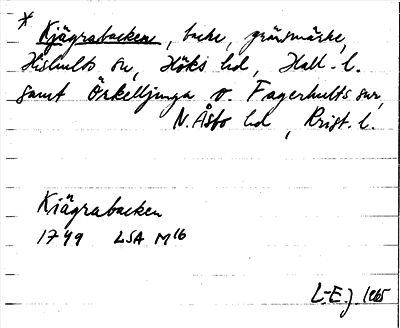 *
Kjägrabacken, backe, gränsmärke,
Hishults sn, Höks hd, Hall. l.
samt Örkelljunga o. Fagerhults snr,
N. Åsbo hd, Krist. l.
Kiägrabacken
1749 LSA M16
L-Ej 1965